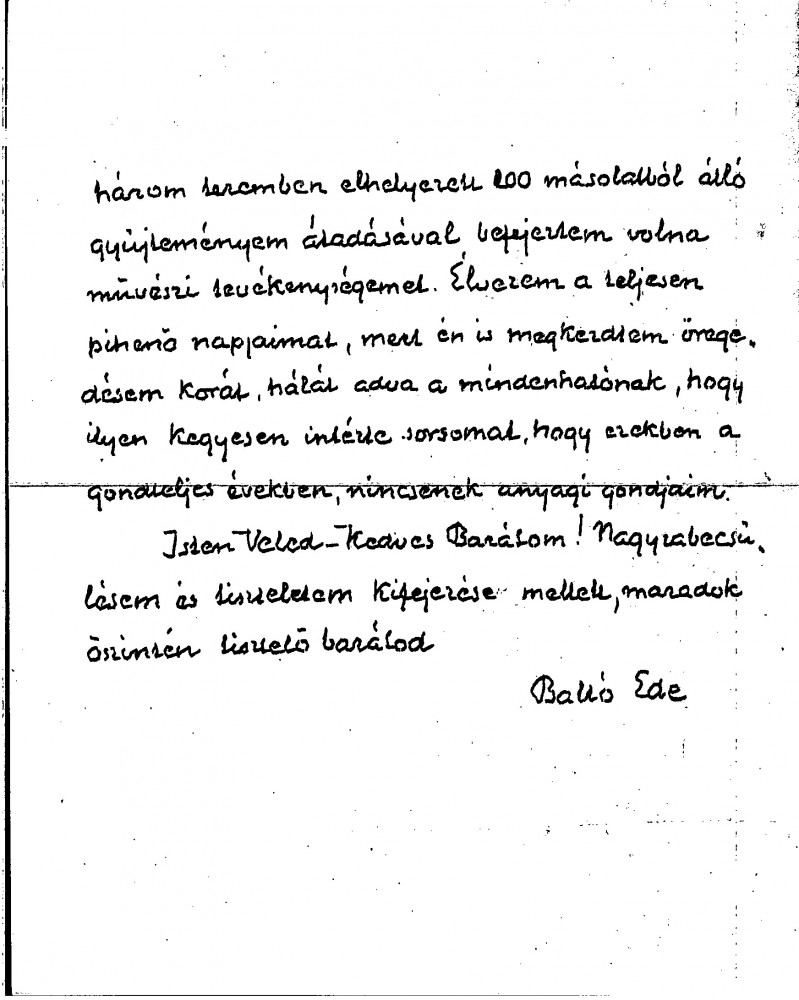 három teremben elhelyezett 200 másolatból álló
gyüjteményem átadásával, befejeztem volna
művészi tevékenységemet. Élvezem a teljesen
pihenő napjaimat, mert én is megkezdtem örege-
désem korát, hálát adva a mindenhatónak, hogy
ilyen kegyesen intézte sorsomat, hogy ezekben a
gondteljes években, nincsenek anyagi gondjaim.
Isten Veled - Kedves Barátom! Nagyrabecsü-
lésem és tiszteletem kifejezése mellett, maradok
őszintén tisztelő barátod
Balló Ede